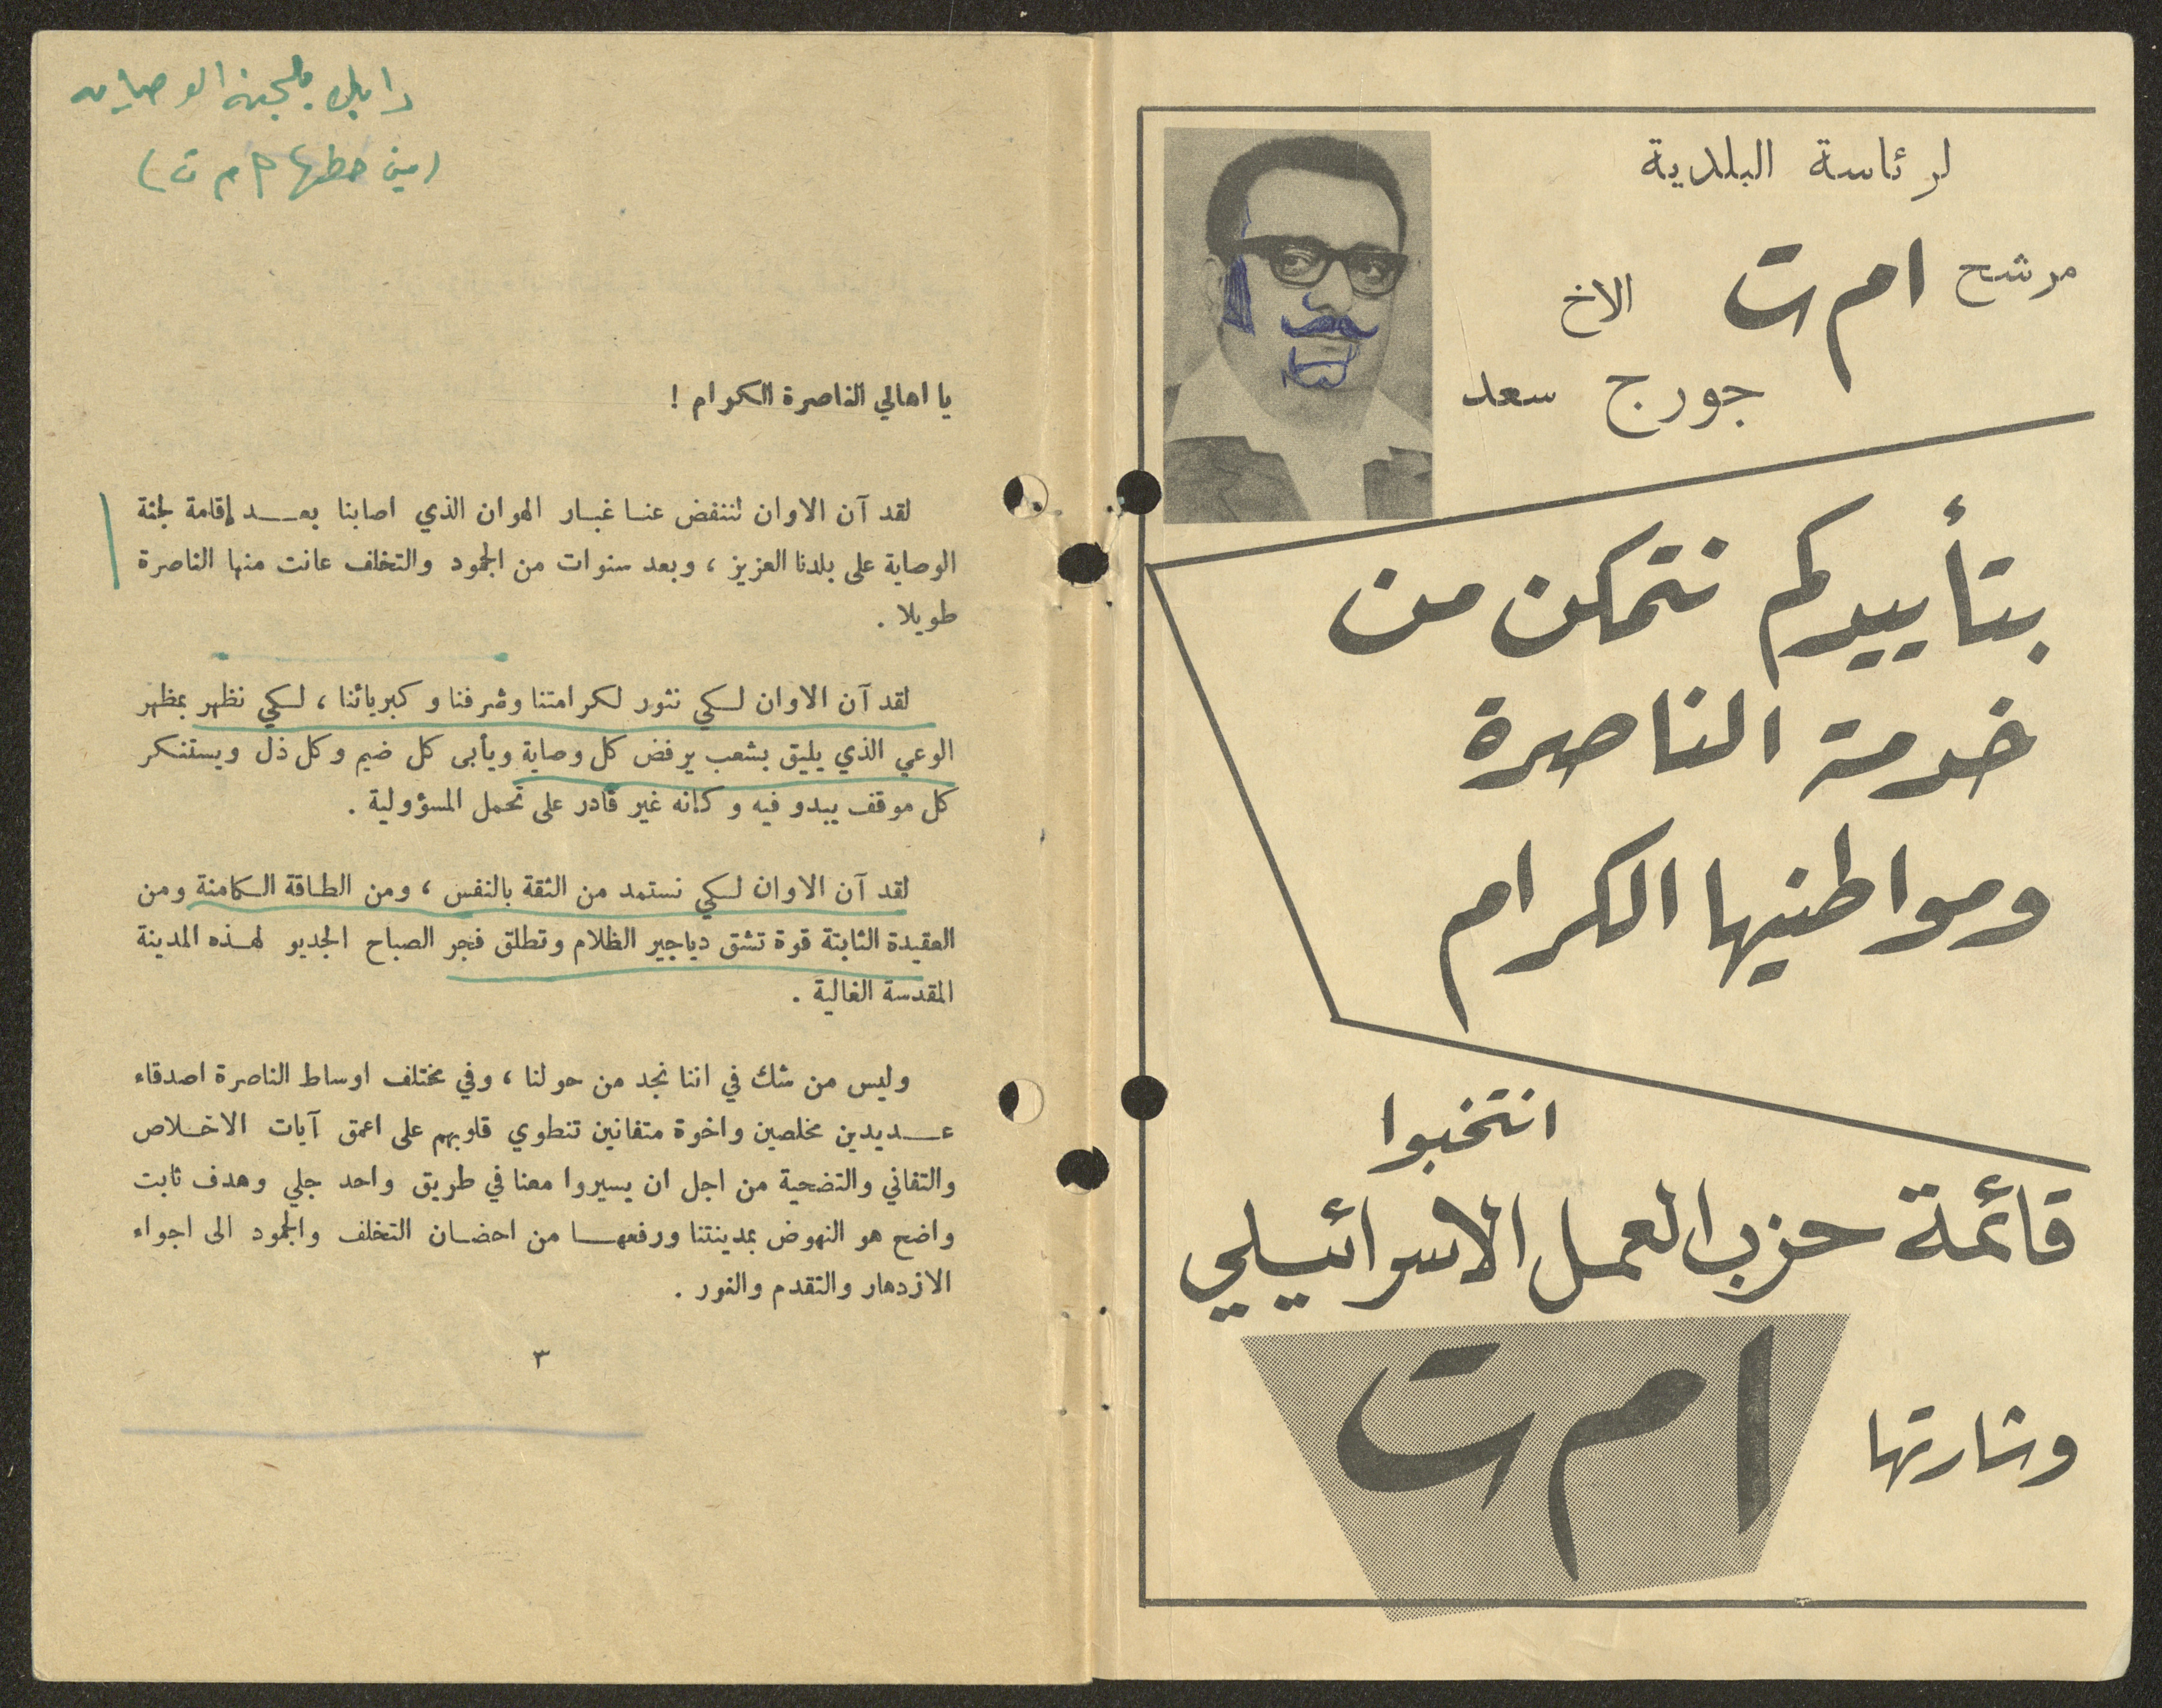 لرئاسة البلدية
مرشح ا م ت الاخ
جورج سعد
بتأييدكم نتمكن من
خدمة الناصرة
ومواطنيها الكرام
انتخبوا
قائمة حزب العمل الاسرائيلي
وشارتها ا م ت
بلجنة الوصايه
(مين حطها ا م ت)
يا اهالي الناصرة الكرام !
لقد آن الاوان لننفض عنا غبار الهوان الذي اصابنا بعد إقامة لجنة
الوصاية على بلدنا العزيز ، وبعد سنوات من الجمود والتخلف عانت منها الناصرة
طويلا .
لقد آن الاوان لكي نثور لكرامتنا وشرفنا وكبريائنا ، لكي نظهر بمظهر
الوعي الذي يليق بشعب يرفض كل وصاية ويأبى كل ضيم وكل ذل ويستنكر
كل موقف يبدو فيه وكانه غير قادر على تحمل المسؤولية .
لقد آن الاوان لكي نستمد من الثقة بالنفس ، ومن الطاقة الكامنة ومن
العقيدة الثابتة قوة تشق دياجير الظلام وتطلق فجر الصباح الجديو لهذه المدينة
المقدسة الغالية .
وليس من شك في اننا نجد من حولنا ، وفي مختلف اوساط الناصرة اصدقاء
عديدين مخلصين واخوة متفانين تنطوي قلوبهم على اعمق آيات الاخلاص
والتفاني والتضحية من اجل ان يسيروا معنا في طريق واحد جلي وهدف ثابت
واضح هو النهوض بمدينتنا ورفعها من احضان التخلف والجمود الى اجواء
الازدهار والتقدم والنور .
٣